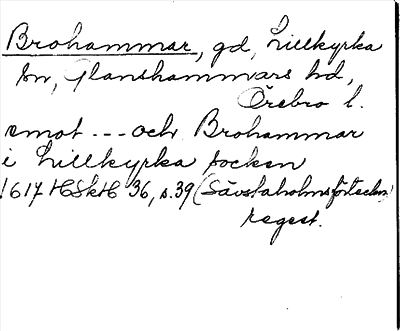 Brohammar, gd, Lillkyrka
sn, Glanshammars hd,
Örebro l.
emot --- och Brohammar
i Lillkyrka socken
1617 HSkH 36, s.39 (Sävstaholmsförteckn)
regest.